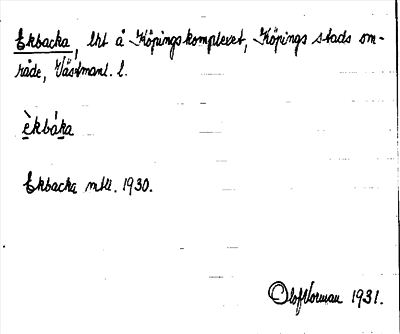 Ekbacka, lht å Köpingskomplexet, Köpings stads om-
råde, Västmanl. l.
èkbáka
Ekbacka mtll. 1930.
Olof Norman 1931.